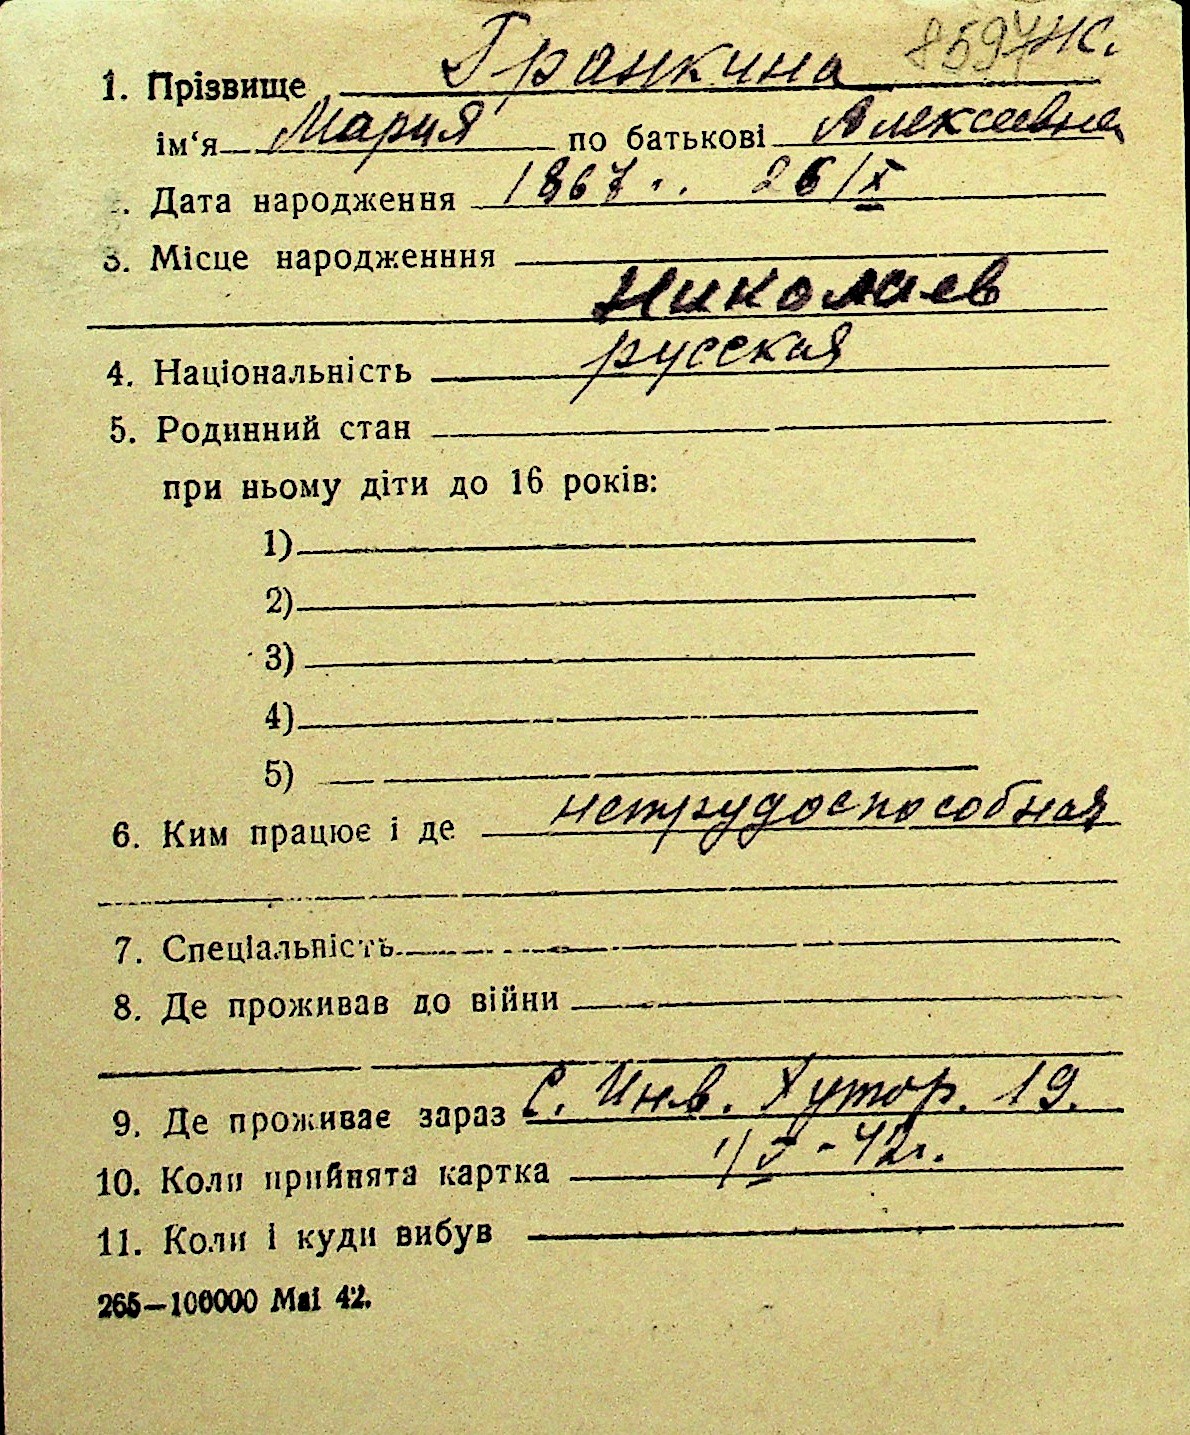 8597 Ж.
1. Прізвище Гранкина
ім‘я Мария по батькові Алексеевна
2. Дата народження 1867 г. 26/X
3. Місце народженння
Николаев
4. Національність русская
5. Родинний стан
при ньому діти до 16 років:
1)
2)
3)
4)
5)
6. Ким працює і де нетрудоспособная
7. Спеціальність
8. Де проживав до війни
9. Де проживає зараз С. Инв. Хутор. 19.
10. Коли прийнята картка 1/X - 42г.
11. Коли і куди вибув
265—100000 Маі 42.